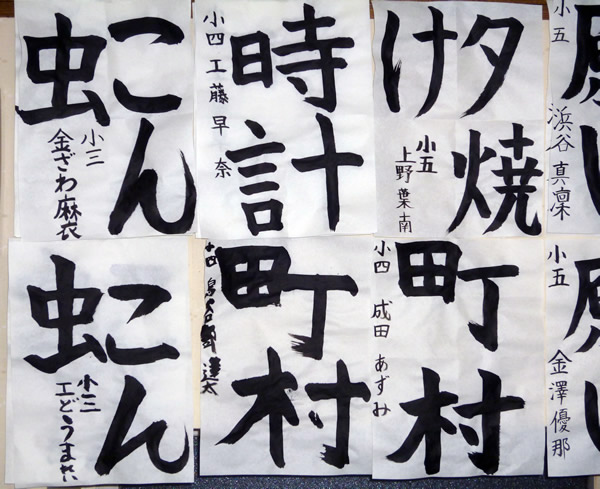 こん
虫
小三
金ざわ麻衣
時計
小四 工藤早奈
夕焼
け
小五
上野葉南
小五 浜谷 真凜
こん
虫
小三
町村
小四
町村
小四 成田 あずみ
小五 金澤優那